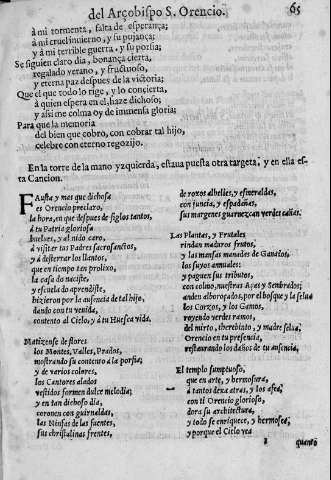 del Arçobispo S. Orencio. 65
à mi tormenta, falta de esperança;
à mi cruel inuierno, y su pujança;
y à mi terrible guerra, y su porfia;
Se siguien claro dia, bonança cierta,
regalado verano, y fructuoso,
y eterna paz despues de la victoria;
Que el que todo lo rige, y lo concierta,
à quien espera en el, haze dichoso;
y assi me colma oy de immensa gloria;
Para que la memoria
del bien que cobro, con cobrar tal hijo,
celebre con eterno regozijo.
En la torre de la mano yzquierda, estaua puesta otra targeta, y en ella es-
ta Cancion.
FAusta y mas que dichosa
es Orencio preclaro,
la hora, en que despues de siglos tantos,
à tu Patria gloriosa
buelues, y al nido caro,
à visitar tus Padres sacrosanctos,
y à desterrar los llantos,
que en tiempo ten prolixo,
la casa do naciste,
y escuela do aprendiste,
hizieron por la ausencia de tal hijo,
dando con tu venida,
contento al Cielo, y à tu Huesca vida.
Matizense de flores
los Montes, Valles, Prados,
mostrando su contento à la porfia;
y de varios colores,
los Cantores alados
vestidos formen dulce melodia;
y en tan dichoso dia,
coronen con guirnaldas,
las Ninfas de las fuentes,
sus christalinas frentes,
de roxos alhelies, y esmeraldas,
con juncia, y espadañas,
sus margenes guarnezcan verdes cañas.
Las Plantas, y Frutales
rindan maduros frutos,
y las mansas manadas de Ganados,
los suyos annuales:
y paguen sus tributos,
con colmo, nuestras Açes y Sembrados;
anden alborotados, por el bosque y la selua
los Corços, y los Gamos,
royendo verdes ramos,
del mirto, therebinto, y madre selua,
Orencio en tu presencia,
restaurando los daños de tu ausencia,
El templo sumptuoso,
que en arte, y hermosura,
à tantos dexa atras, y los afea,
con ti Orencio glorioso,
dora su architectura,
y todo se enriquece, y hermosea;
y porque el Cielo vea
quanto